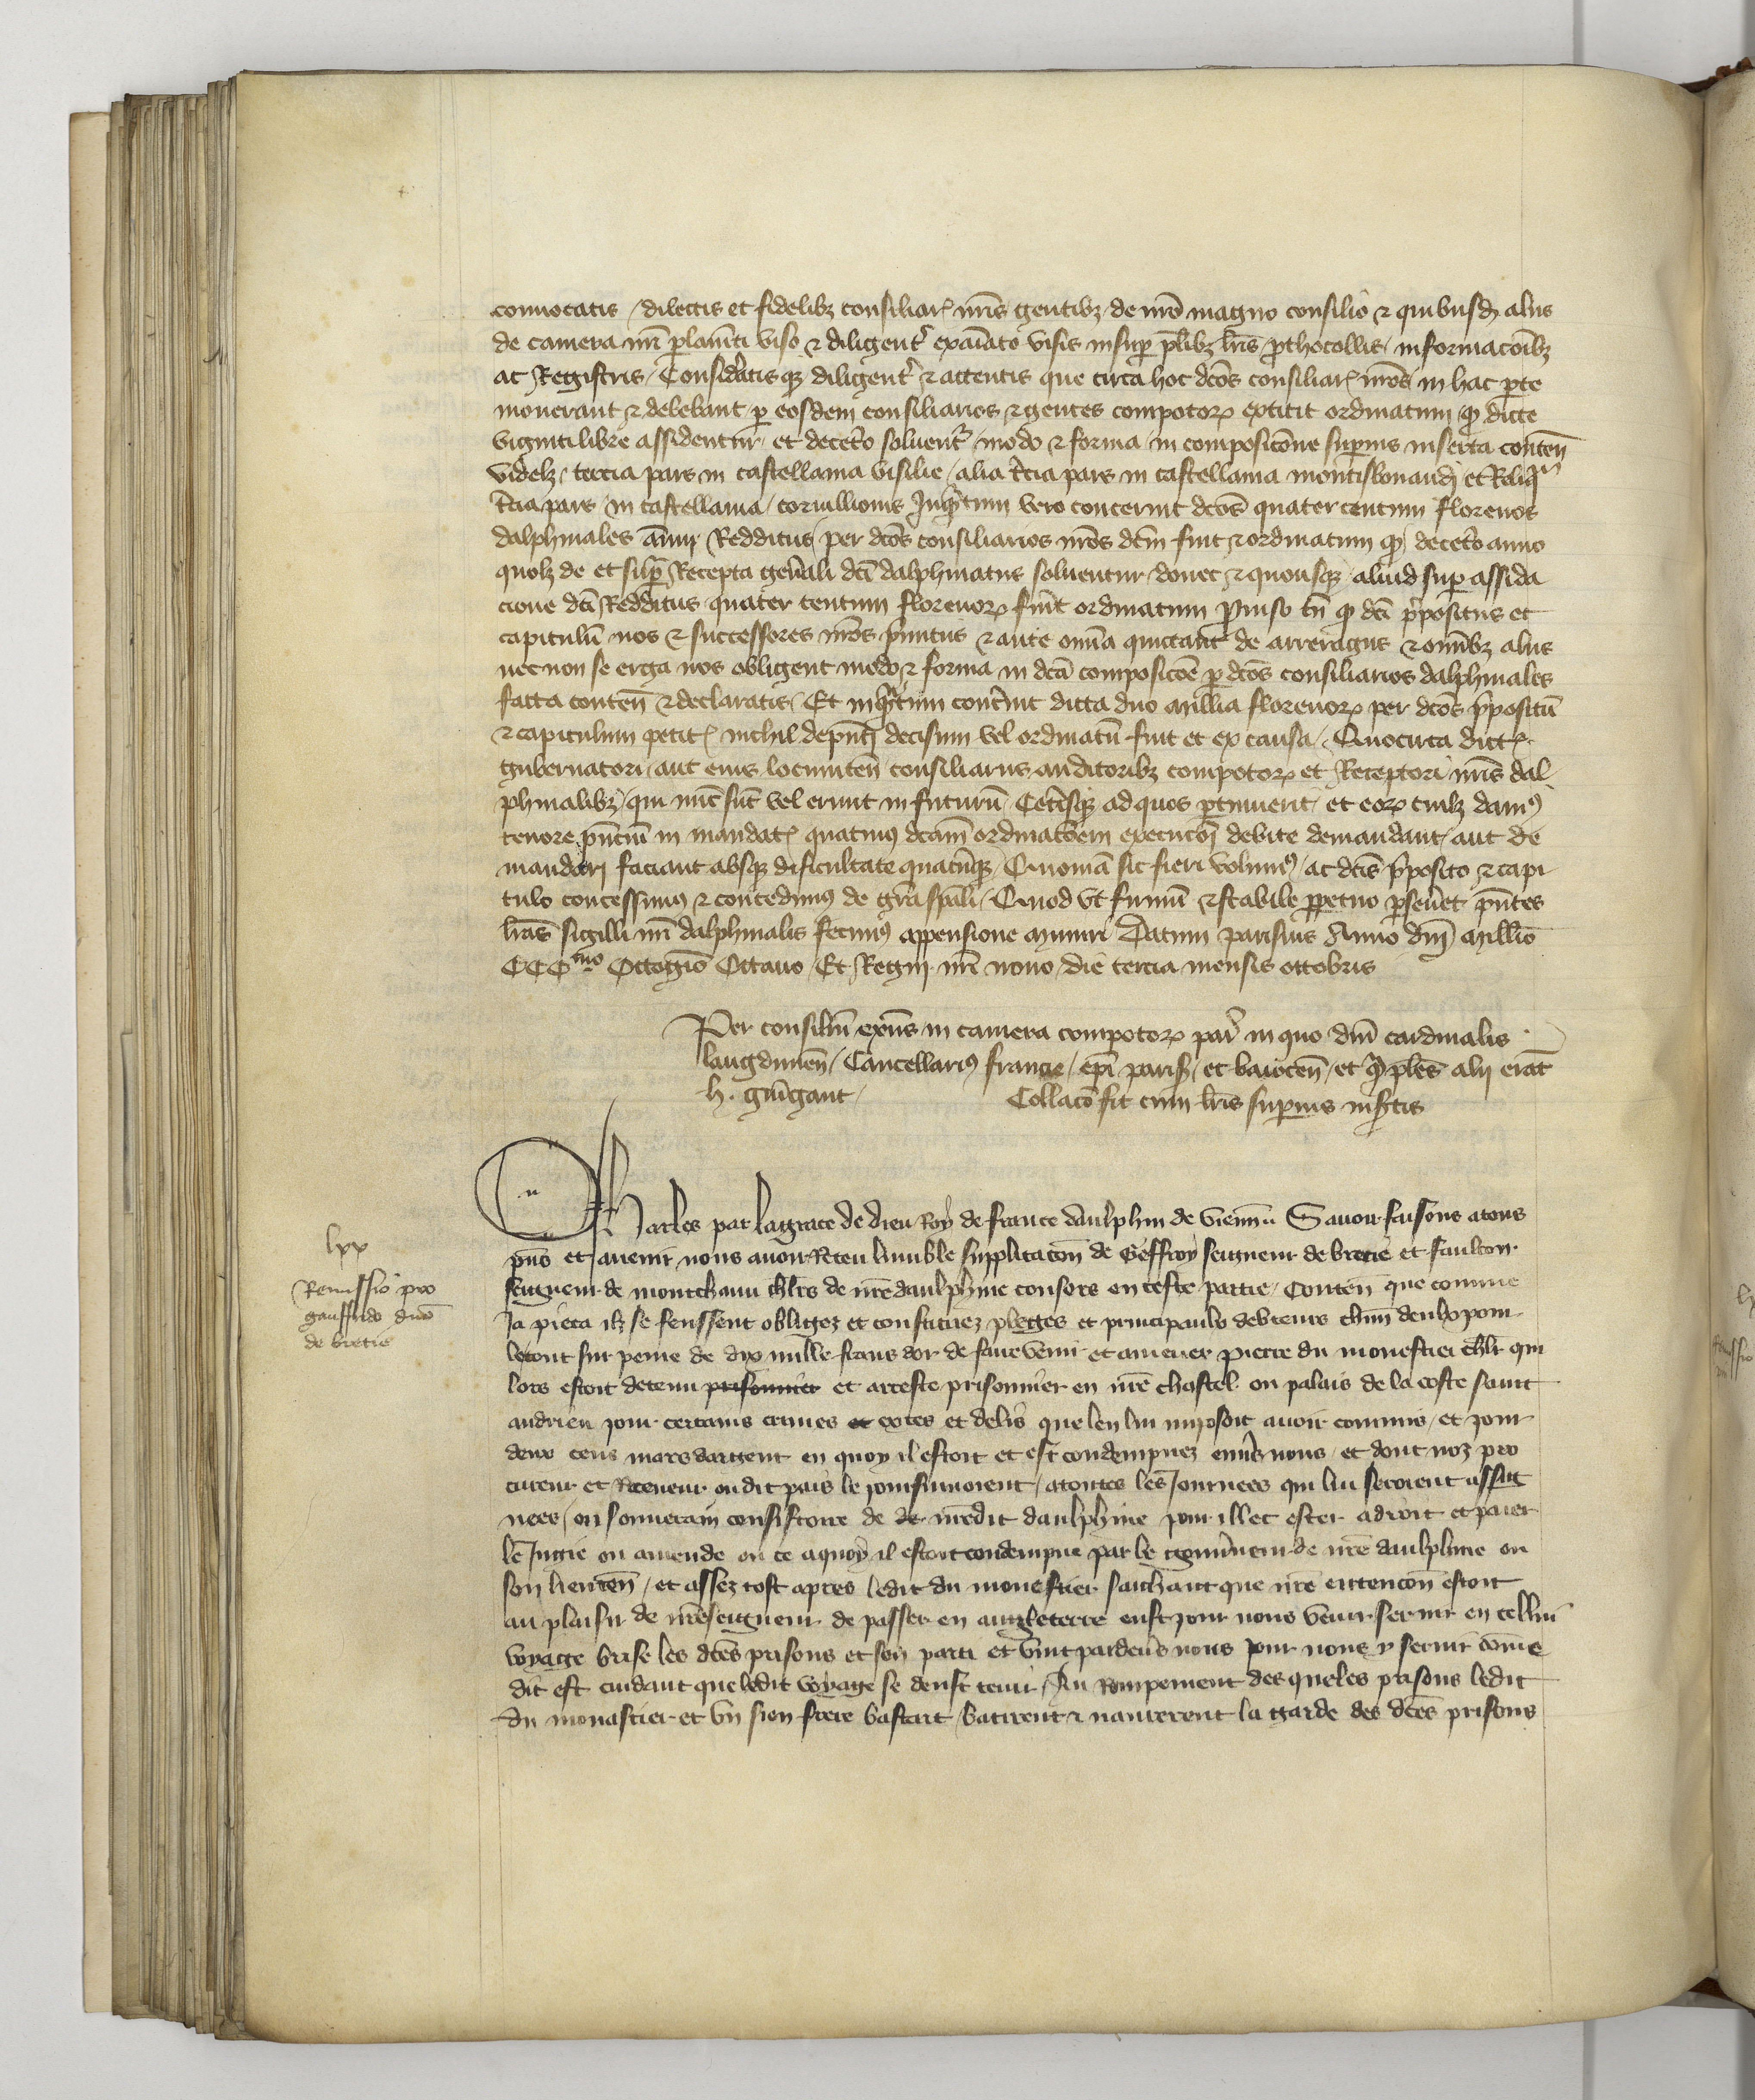 conuocatis dilectis et fidelibz consiliar nris gentibz de nro magno consilio & quibusd aliis
de camera nri parlamti viso & diligent exaiato visis insup plibz lris prothocollis informacoibz
ac Registris Considatis qz diligent & attentis que circa hoc dcos consiliar nros in hac pte
mouerant & debebant p eosdem consiliarios & gentes compotor extitit ordinatum q dicte
viginti libre assidentur et deceto soluent modo & forma in composicone supius inserta conten
videlz tercia pars in castellania visilie alia tcia pars in castellania montisbonaudi et Reliq
tcia pars in castellania coruillionis Inqtum vero concernit dcos quater centum florenos
dalphinales annui Redditus per dcos consiliarios nros dcm fuit & ordinatum q deceto anno
quolz de et sup Recepta genali dci dalphinatus soluentur donec & quousqz aliud sup assida
cione dci Redditus quater centum florenor fuit ordinatum Prouiso tn q dci ppositus et
capitulu nos & successores nros primitus & ante omia quictant de arreragiis & omibz aliis
nec non se erga nos obligent modo & forma in dca composicoe p dcos consiliarios dalphinales
facta conten & declaratis Et inqtum concnit dicta duo millia florenor per dcos ppositu
& capitulum petit nichil depnti decisum vel ordinatu fuit et ex causa Quocirca dict
gubernatori aut eius locumten consiliariis auditoribz compotor et Receptori nris dal
phinalibz qui nuc sut vel erunt in futuru Cetisqz ad quos ptinuerit et eor cuilz dam9
tenore pnciu in mandat quatin9 dcam ordinacoem execucoi debite demandant aut de
mandari faciant absqz dificultate quacuqz Quoniam sic fieri volum9 ac dcis pposito & capi
tulo concessim9 & concedim9 de gra spali Quod vt firmu & stabile ppetuo pseuet pntes
lras sigilli nri dalphinalis fecim9 appensione muniri Datum parisius Anno dni millio
CCCmo Octogio Octauo Et Regni nri nono die tercia mensis octobris
Per consiliu exns in camera compotor par in quo dni cardinalis
laugdunen Cancellari9 francie epi paris et baiocen et q ples alij erat
h. guingant Collaco fit cum lris superius insertis
Charles par la grace de dieu Roy de france daulphin de viennois Sauoir faisons a tous
pns et auenir nous auoir Receu lumble supplicacon de Geffroy seigneur de bretie et faulcon
seigneur de montchanu chlrs de nre daulphine consors en ceste partie Conten que comme
Ja pieca ilz se feussent obligez et constituez pleges et principaulx debteurs chun deulx pour
le tout sur peine de dix mille frans dor de faire venir et amener pierre du monestier chlr qui
lors estoit detenu prisonnier et arreste prisonnier en nre chastel ou palais de la coste saint
andrieu pour certains crimes et exces et delis que len lui imposoit auoir commis et pour
deux cens mars dargent en quoy il estoit et est condempnez enuers nous et dont noz pro
cureur et Receueur oudit pais le poursuiuoient a toutes les Journees qui lui seroient assig
nees ou souuerain consistoire de de nredit daulphine pour illec ester a droit et paier
le Jugie ou amende ou ce a quoy il estoit condempne par le gouuneur de nre daulphine ou
son lieuten et assez tost apres ledit du monestier saichant que nre entencon estoit
au plaisir de nreseigneur de passer en angleterre eust pour nous venir seruir en cellui
voyage brise les dces prisons et sen parti et vint pardeuers nous pour nous y seruir come
dit est cuidant que ledit voyage se deust tenir Au Rompement des queles prisons ledit
du monastier et vn sien frere bastart batirent & naurerent la garde des dces prisons
lxx
Remissio pro
gauffrido dno
de bretie